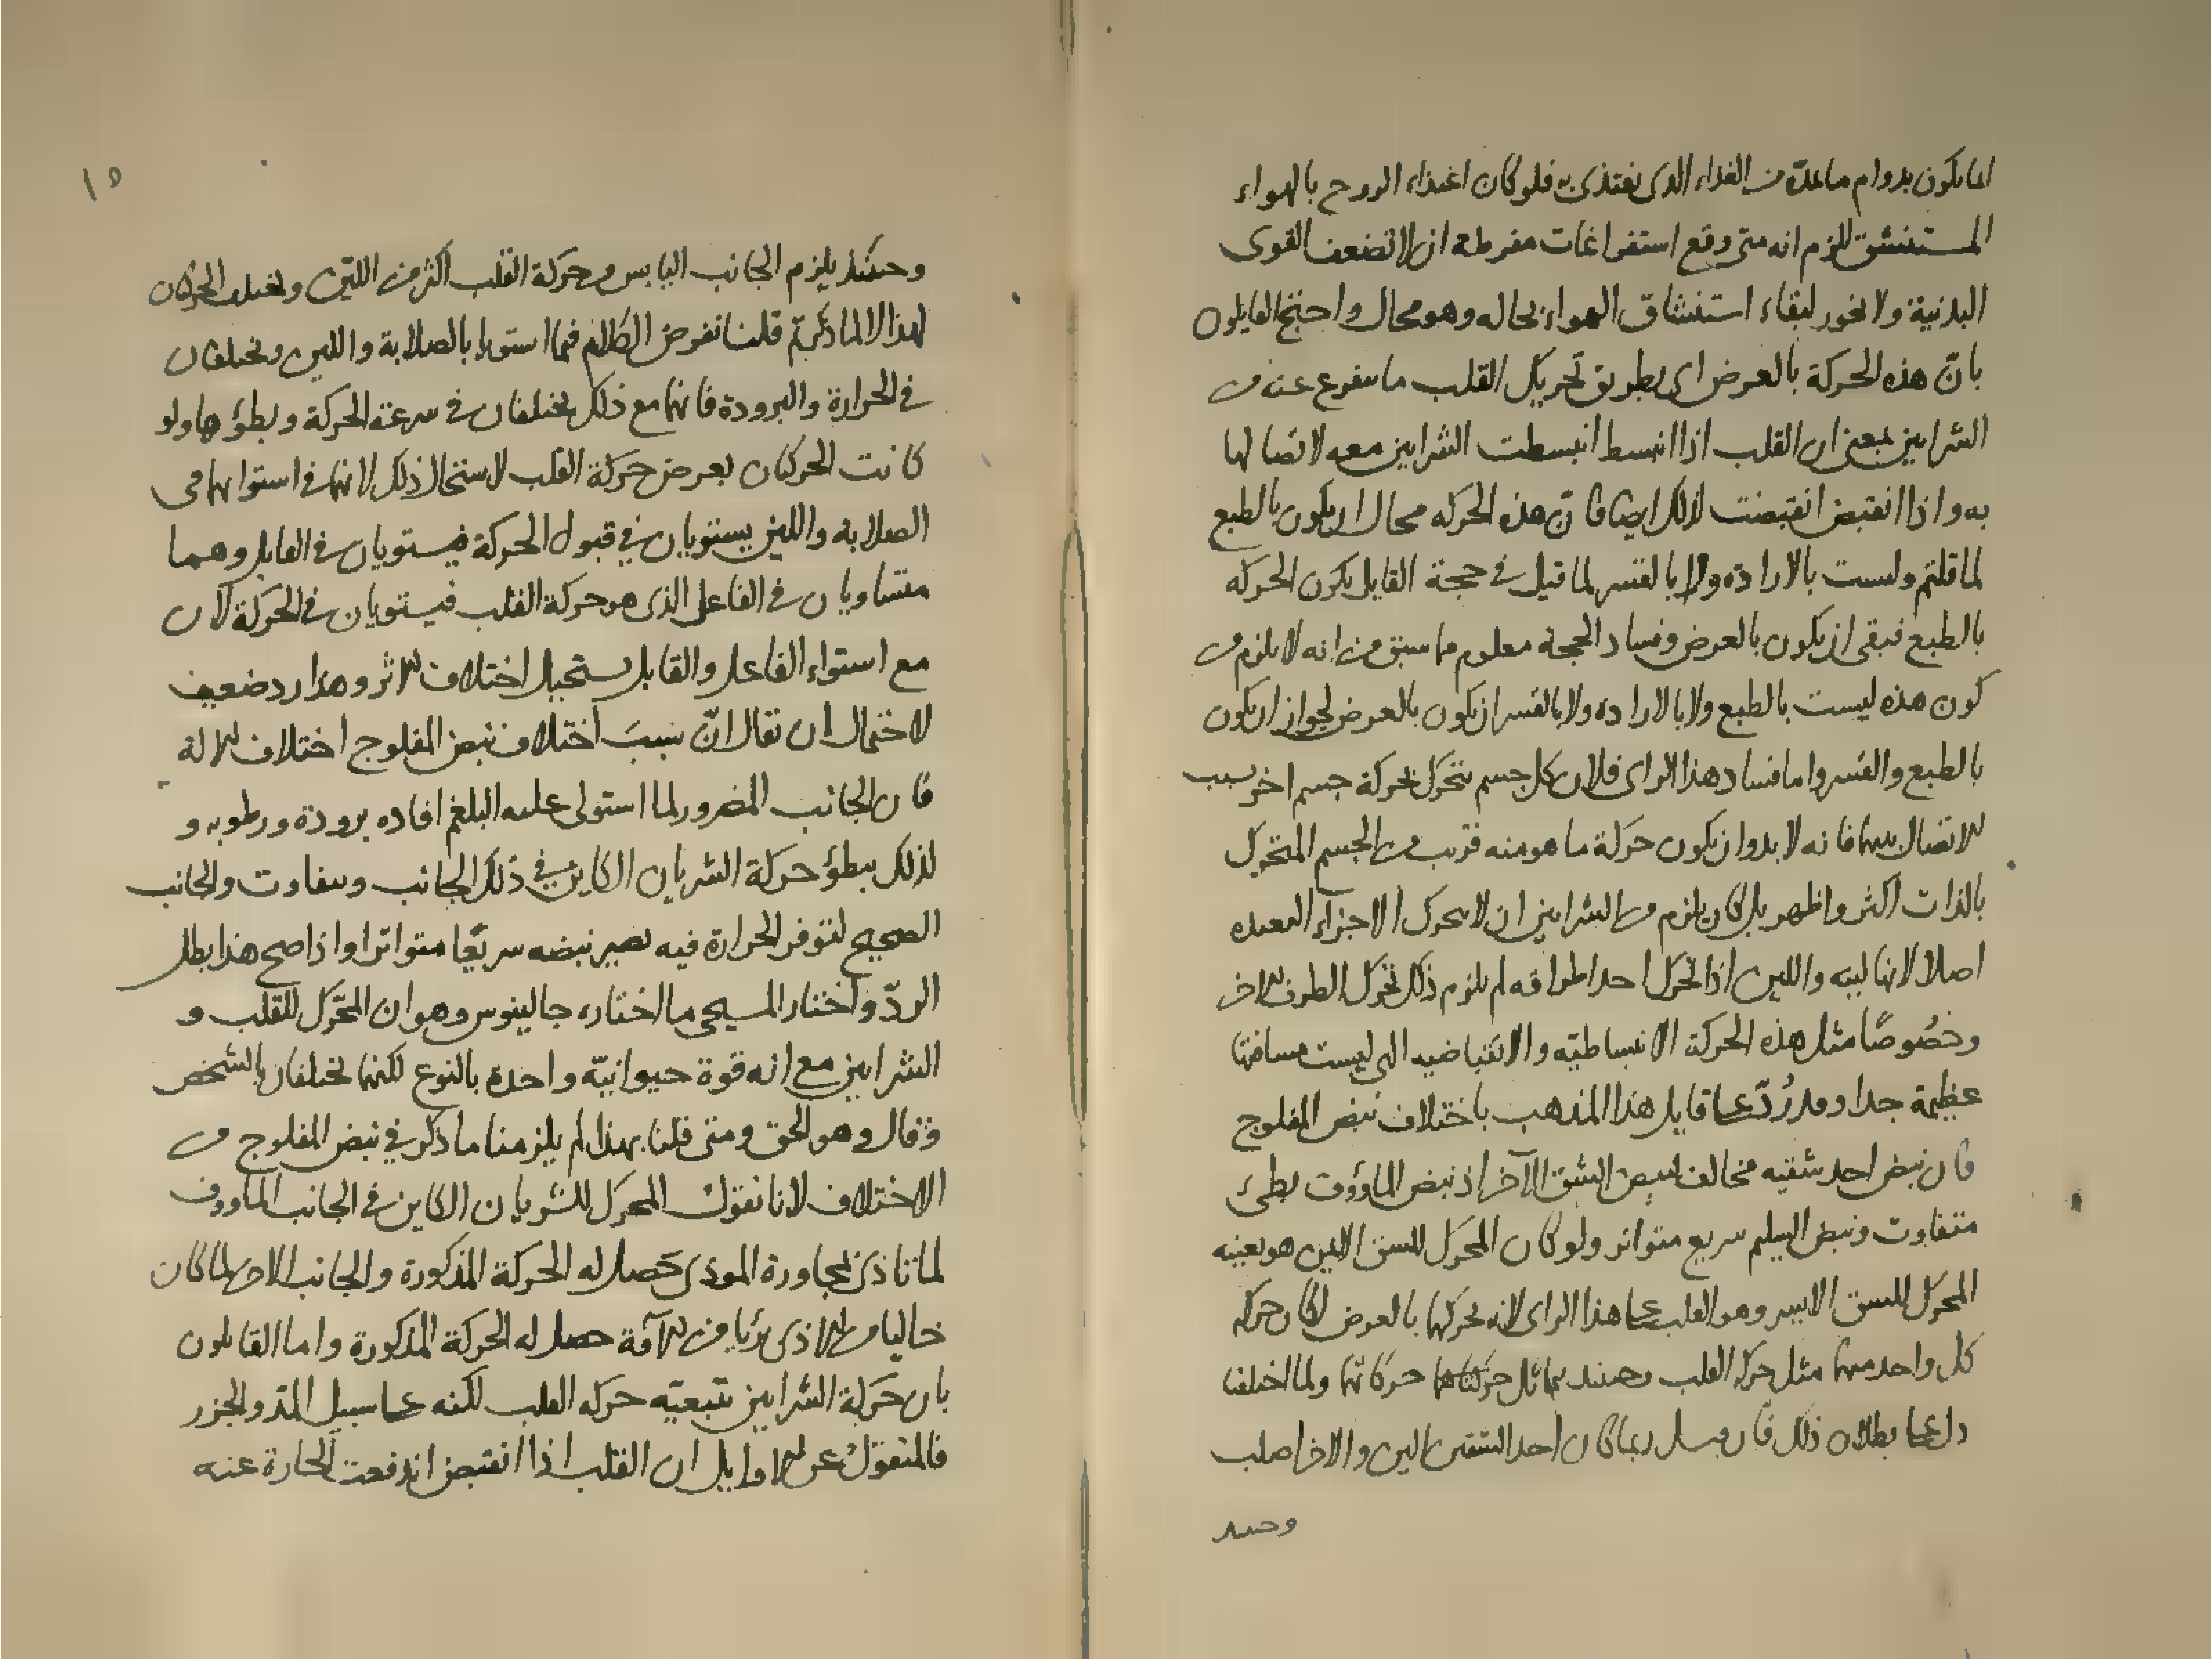 انما يكون بدوام ما يمدّه من الغذاء الذى يغتذى به فلو كان اغتذاء الروح بالهواء
المستنشق للزم انه متى وقع استفراغات مفرطة ان لا تضعف القوى
البدنية ولا تخور لبقاء استنشاق الهواء بحاله وهو محال واحتج القايلون
بانّ هذه الحركة بالعرض اى بطريق تحريك القلب ما يتفرع عنه من
الشرايين بمعنى ان القلب اذا انبسط انبسطت الشرايين معه لاتصالها
به واذا انقبض انقبضت لذلك ايضا فانّ هذه الحركه محال ان يكون بالطبع
لما قلتم وليست بالاراده ولا بالقسر لما قيل في حجة القايل بكون الحركه
بالطبع فبقى ان يكون بالعرض وفساد الحجة معلوم مما سبق من انه لا يلزم من
كون هذه ليست بالطبع ولا بالاراده ولا بالقسر ان يكون بالعرض لجواز ان يكون
بالطبع والقسر واما فساد هذا الراى فلان كل جسم يتحرك بحركة جسم اخر بسبب
الاتصال بينهما فانه لا بد وان يكون حركة ما هو منه قريب من الجسم المتحرك
بالذات اكثر واظهر بل كان يلزم من الشرايين ان لا يتحرك الاجزاء البعيده
اصلا لانها لينه واللين اذا تحرك احد اطرافه لم يلزم ذلك تحرك الطرف الاخر
وخصُوصًا مثل هذه الحركة الانبساطيّه والانقباضيه التى ليست مسافتها
عظيمة جدا وقد رُدّ على قايل هذا المذهب باختلاف نبض المفلوج
فان نبض احد شقيه مخالف لنبض الشق الآخر اذ نبض الماؤوف بطئ
متفاوت ونبض السليم سريع متواتر ولو كان المحرك للشق الايمن هو بعينه
المحرك للشق الايسر وهو القلب على هذا الراى لانه يحركهما بالعرض لكان حركه
كل واحد منهما مثل حركه القلب وحينئذ يتماثل حركاتهما ولما اختلفا
دل على بطلان ذلك فان قيل ربما كان احد الشقين الين والاخر اصلب
وحينئذ
١٥
وحينئذ يلزم الجانب اليابس من حركة القلب اكثر من الليّن ويختلف الحركتان
لهذا لا لما ذكرتم قلنا نفرض الكلام فيما استويا بالصلابة واللين ويختلفان
في الحرارة والبرودة فانهما مع ذلك يختلفان في سرعة الحركة وبطؤها ولو
كانت الحركتان بعرض حركة القلب لاستحال ذلك لانهما في استوائهما في
الصلابه واللين يستويان في قبول الحركة فيستويان في القابل وهما
متساويان في الفاعل الذى هو حركة القلب فيستويان في الحركة لان
مع استواء الفاعل والقابل يستحيل اختلاف الاثر وهذا رد ضعيف
لاحتمال ان يقال انّ سبب اختلاف نبض المفلوج اختلاف الالة
فان الجانب المضرور لما استولى عليه البلغم افاده برودة ورطوبه و
لذلك يبطؤ حركة الشريان الكاين في ذلك الجانب ويتفاوت والجانب
الصحيح لتوفر الحرارة فيه يصير نبضه سريعًا متواترا واذا صح هذا بطل
الردّ واختار المسيحى ما اختاره جالينوس وهو ان المحّرك للقلب و
الشرايين مع انه قوة حيوانيّه واحدة بالنوع لكنهما يختلفان بالشخص
وقال وهو الحق ومتى قلنا بهذا لم يلزمنا ما ذكر في نبض المفلوج من
الاختلاف لانا نقول المحرك للشريان الكاين في الجانب الماووف
لما تاذى بمجاورة الموذى حصل له الحركة المذكورة والجانب الاخر لما كان
خاليا من الاذى بريا من الآفة حصل له الحركة المذكورة واما القايلون
بان حركة الشرايين بتبعيّه حركه القلب لكنه على سبيل المدّ والجزر
فالمنقول عن الاوايل ان القلب اذا انقبض اندفعت الحارة عنه